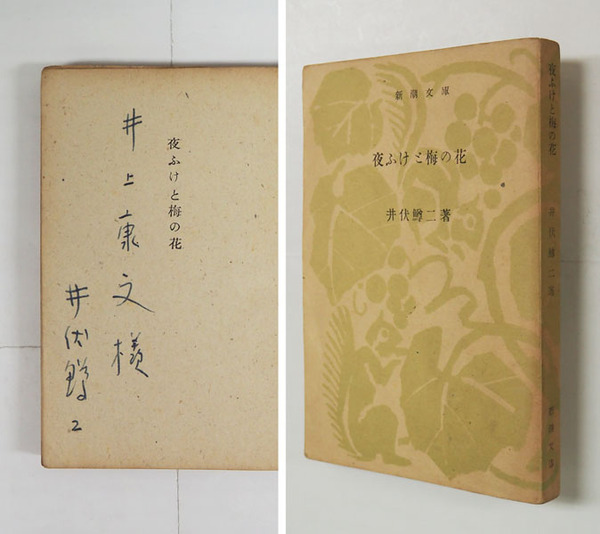 夜ふけと梅の花
井上康文様
井伏鱒2
新潮文庫
夜ふけと梅の花
井伏鱒二著
夜ふけと梅の花
井伏鱒二著
新潮文庫